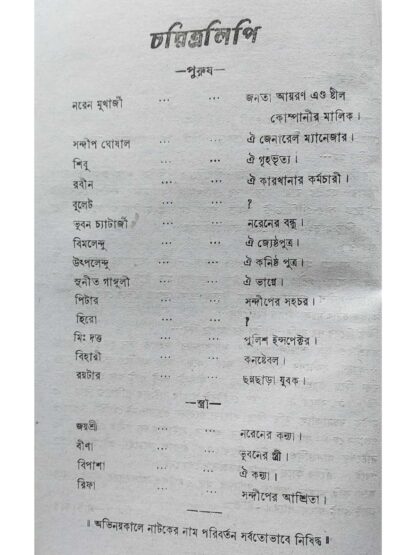 চরিত্রলিপি
—পুরুষ—
নরেন মুখার্জী ... ... জনতা আয়রণ এণ্ড ষ্টীল
কোম্পানীর মালিক।
সন্দীপ ঘোষাল ... ... ঐ জেনারেল ম্যানেজার।
শিবু ... ... ঐ গৃহভৃত্য।
রবীন ... ... ঐ কারখানার কর্মচারী।
বুলেট ... ... ?
ভুবন চ্যাটার্জী ... ... নরেনের বন্ধু।
বিমলেন্দু ... ... ঐ জ্যেষ্ঠপুত্র।
উৎপলেন্দু ... ... ঐ কনিষ্ঠ পুত্র।
সুনীত গাঙ্গুলী ... ... ঐ ভাগ্নে।
পিটার ... ... সন্দীপের সহচর।
হিরো ... ... ?
মিঃ দত্ত ... ... পুলিশ ইন্সপেক্টর।
বিহারী ... ... কনষ্টেবল।
রয়টার ... ... ছন্নছাড়া যুবক।
—স্ত্রী—
জয়শ্রী ... ... নরেনের কন্যা।
বীণা ... ... ভুবনের স্ত্রী।
বিপাশা ... ... ঐ কন্যা।
রিফা ... ... সন্দীপের আশ্রিতা।
॥ অভিনয়কালে নাটকের নাম পরিবর্তন সর্বতোভাবে নিষিদ্ধ ॥